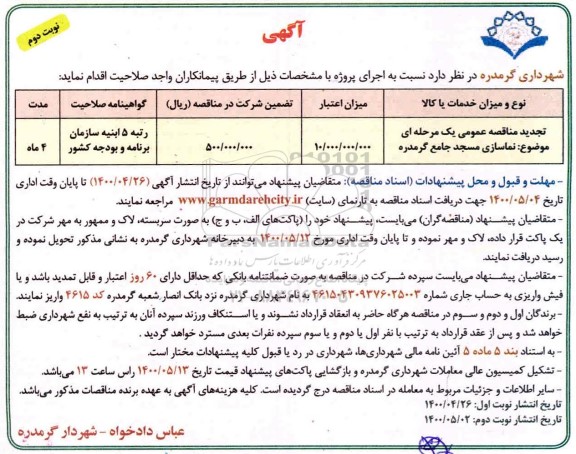 آگهی
نوبت دوم
شهرداری گرمدره در نظر دارد نسبت به اجرای پروژه با مشخصات ذیل از طریق پیمانکاران واجد صلاحیت اقدام نماید:
نوع و میزان خدمات یا کالا	میزان اعتبار	تضمین شرکت در مناقصه (ریال)	گواهینامه صلاحیت	مدت
تجدید مناقصه عمومی یک مرحله ای	۱۰/۰۰۰/۰۰۰/۰۰۰	۵۰۰/۰۰۰/۰۰۰	رتبه ۵ ابنیه سازمان	۴ ماه
موضوع: نماسازی مسجد جامع گرمدره	برنامه و بودجه کشور
- مهلت و قبول و محل پیشنهادات (اسناد مناقصه): متقاضیان پیشنهاد می‌توانند از تاریخ انتشار آگهی (۱۴۰۰/۰۴/۲۶) تا پایان وقت اداری
تاریخ ۱۴۰۰/۰۵/۰۴ جهت دریافت اسناد مناقصه به تارنمای (سایت) www.garmdarehcity.ir مراجعه نمایند.
- متقاضیان پیشنهاد (مناقصه‌گران) می‌بایست، پیشنهاد خود را (پاکت‌های الف، ب و ج) به صورت سربسته، لاک و ممهور به مهر شرکت در
یک پاکت قرار داده، لاک و مهر نموده و تا پایان وقت اداری مورخ ۱۴۰۰/۰۵/۱۲ به دبیرخانه شهرداری گرمدره به نشانی مذکور تحویل نموده و
رسید دریافت نمایند.
- متقاضیان پیشنهاد می‌بایست سپرده شرکت در مناقصه به صورت ضمانتنامه بانکی که حداقل دارای ۶۰ روز اعتبار و قابل تمدید باشد و یا
فیش واریزی به حساب جاری شماره ۴۶۱۵-۰۴۳۰۹۳۷۶۰۲۵۰۰۳ به نام شهرداری گرمدره نزد بانک انصار شعبه گرمدره کد ۴۶۱۵ واریز نمایند.
- برندگان اول و دوم و سوم در مناقصه هرگاه حاضر به انعقاد قرارداد نشوند و یا استنکاف ورزند سپرده آنان به ترتیب به نفع شهرداری ضبط
خواهد شد و پس از عقد قرارداد به ترتیب با نفر اول یا دوم و یا سوم سپرده نفرات بعدی مسترد خواهد گردید.
- به استناد بند ۵ ماده ۵ آئین نامه مالی شهرداری‌ها، شهرداری در رد یا قبول کلیه پیشنهادات مختار است.
- تشکیل کمیسیون عالی معاملات شهرداری گرمدره و بازگشایی پاکت‌های پیشنهاد قیمت تاریخ ۱۴۰۰/۰۵/۱۳ راس ساعت ۱۳ می‌باشد.
- سایر اطلاعات و جزئیات مربوط به معامله در اسناد مناقصه درج گردیده است. کلیه هزینه‌های آگهی به عهده برنده مناقصات مذکور می‌باشد.
تاریخ انتشار نوبت اول: ۱۴۰۰/۰۴/۲۶
تاریخ انتشار نوبت دوم: ۱۴۰۰/۰۵/۰۲
عباس دادخواه - شهردار گرمدره